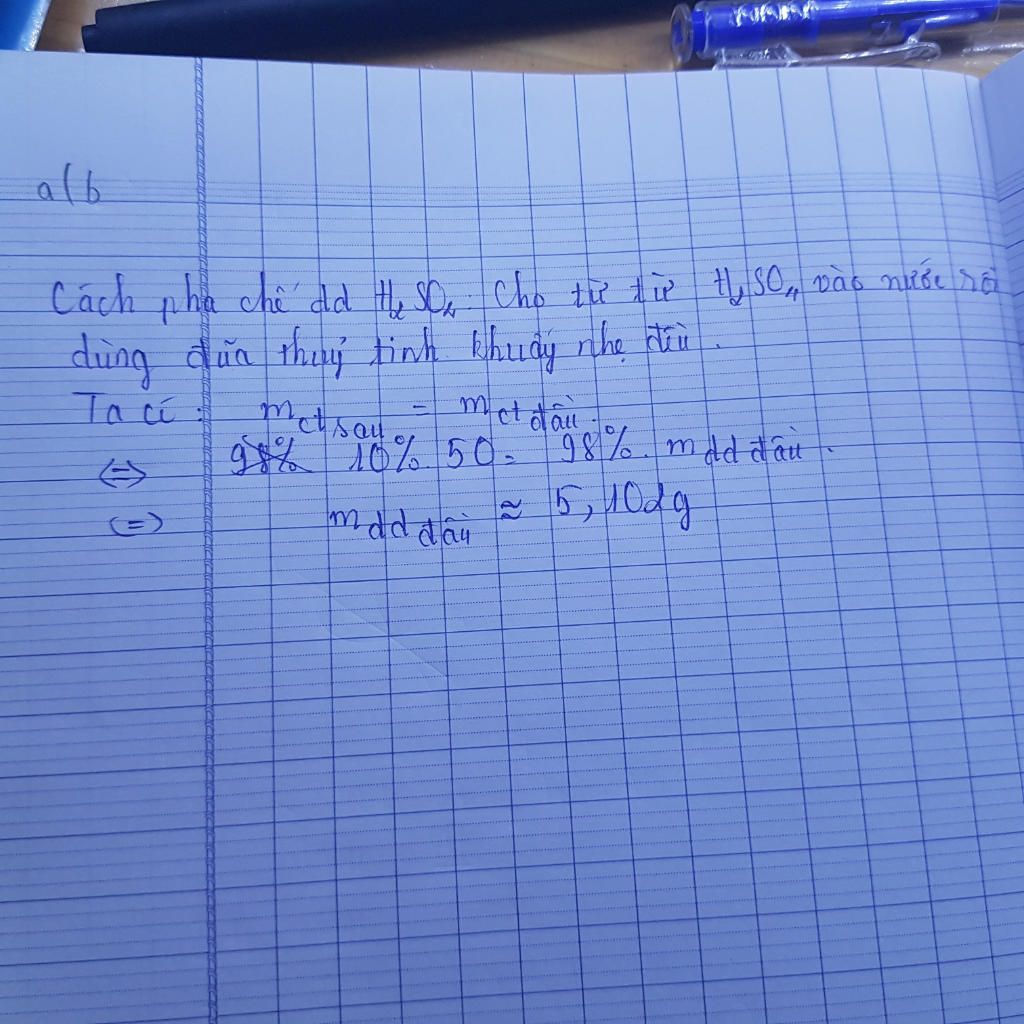 a/b
Cách pha chế dd H₂SO₄. Cho từ từ H₂SO₄ vào nước rồi
dùng đũa thuỷ tinh khuấy nhẹ đều.
Ta có: m ct sau = m ct đầu.
⇔ 98% 10%.50 = 98%. m dd đầu.
⇔ m dd đầu ≈ 5,102g